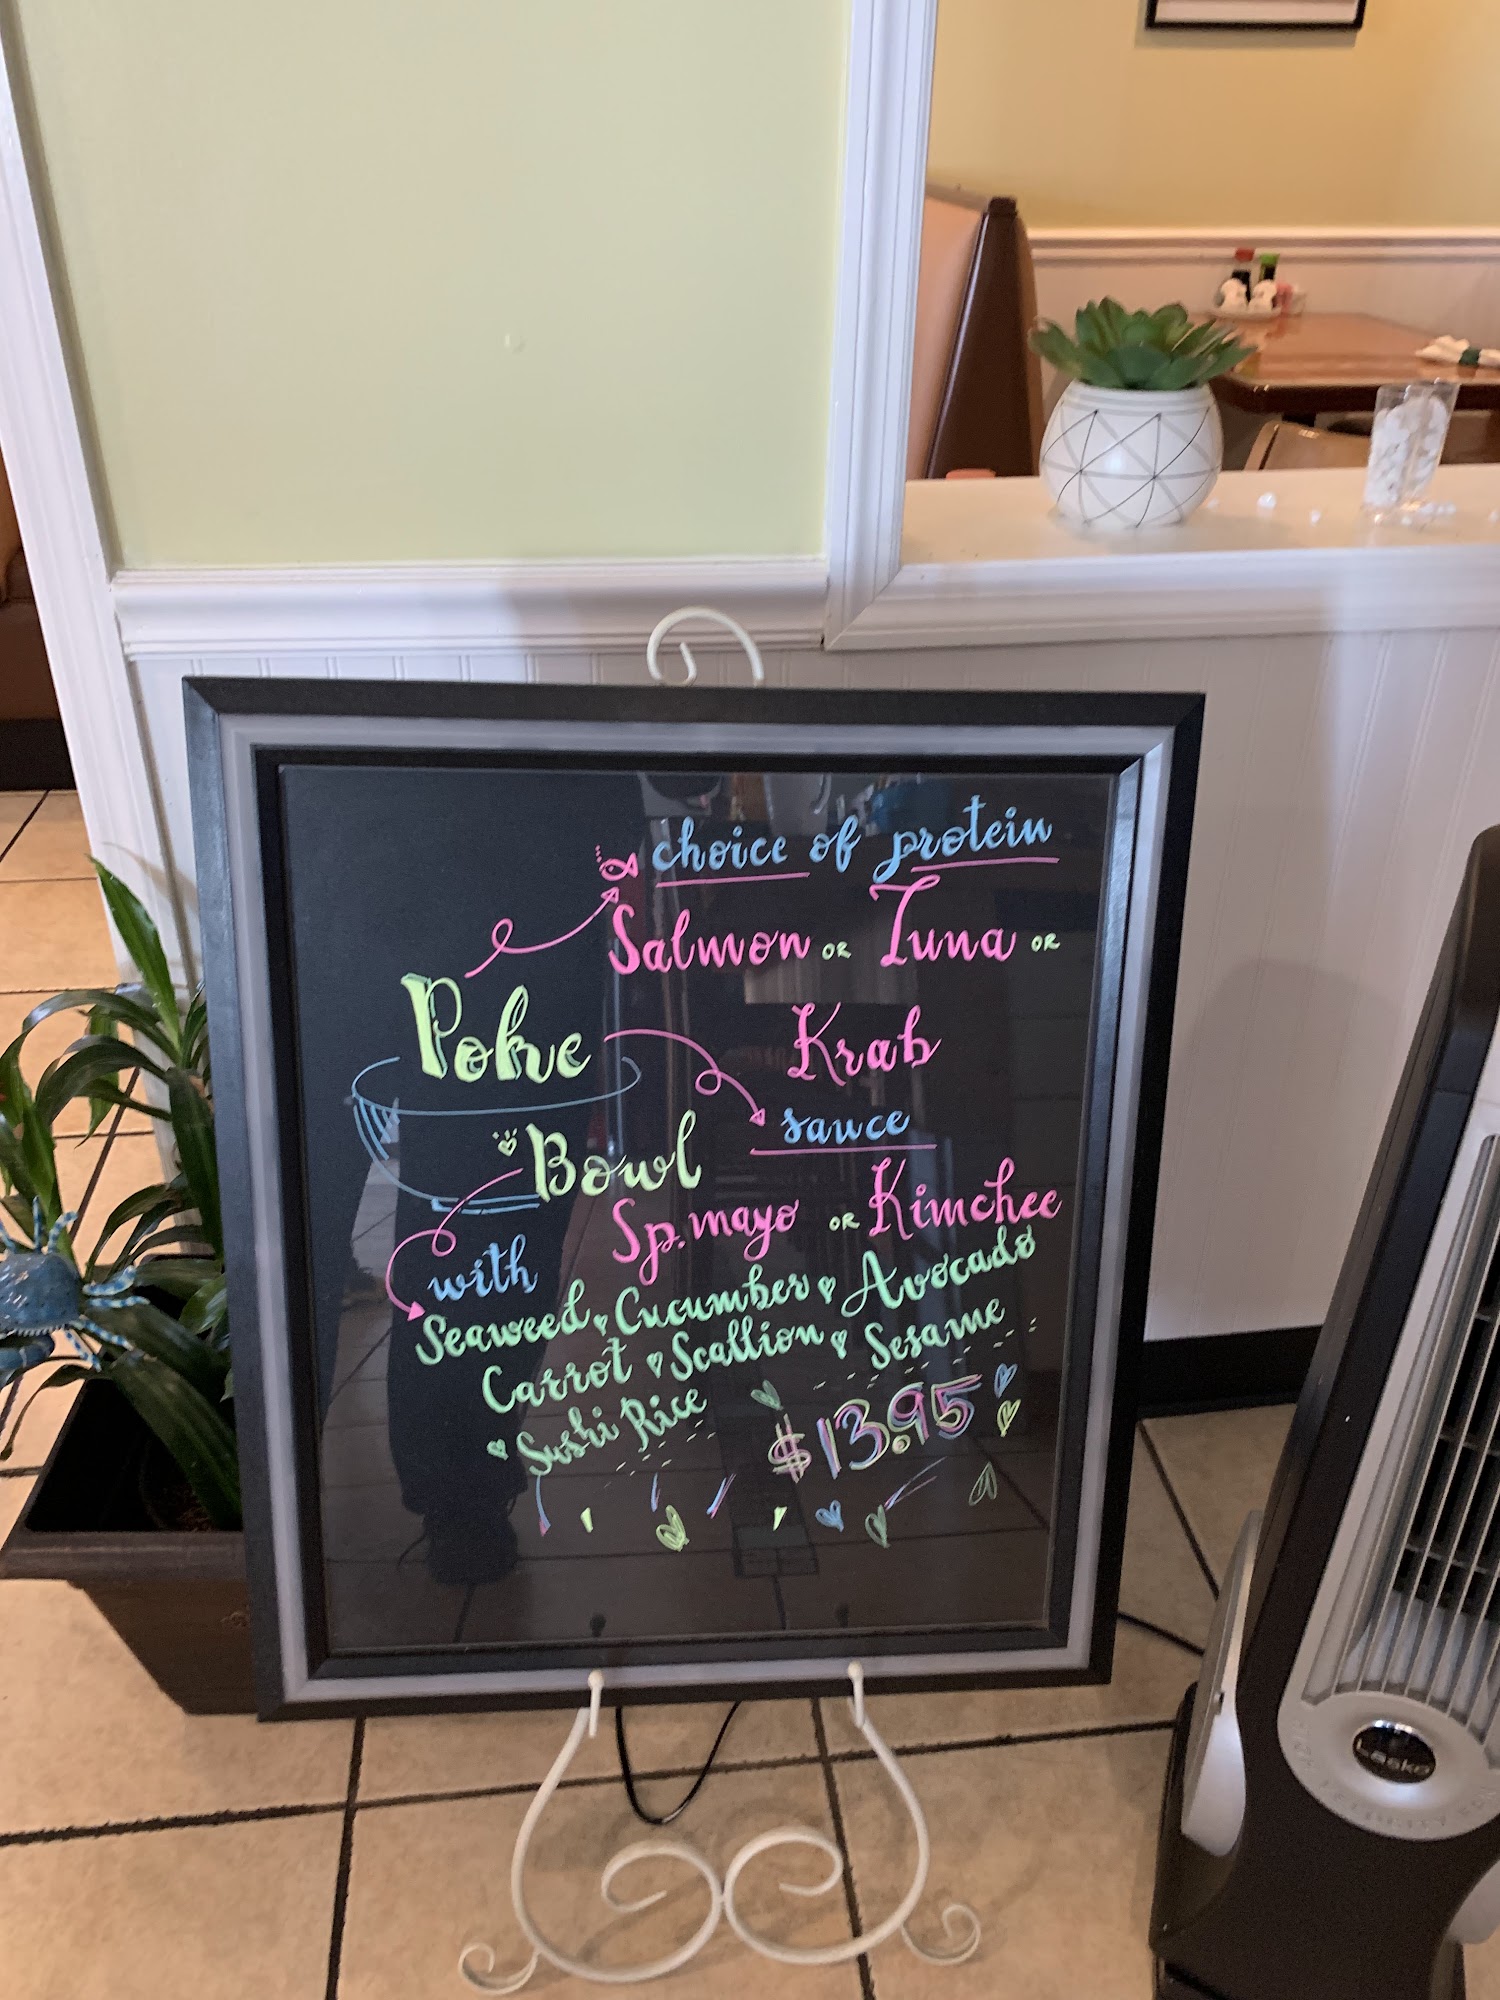 choice of protein
Salmon OR Tuna OR
Krab
Poke
Bowl
sauce
Sp. mayo OR Kimchee
with
Seaweed Cucumber Avocado
Carrot Scallion Sesame
Sushi Rice
$13.95
Lasko